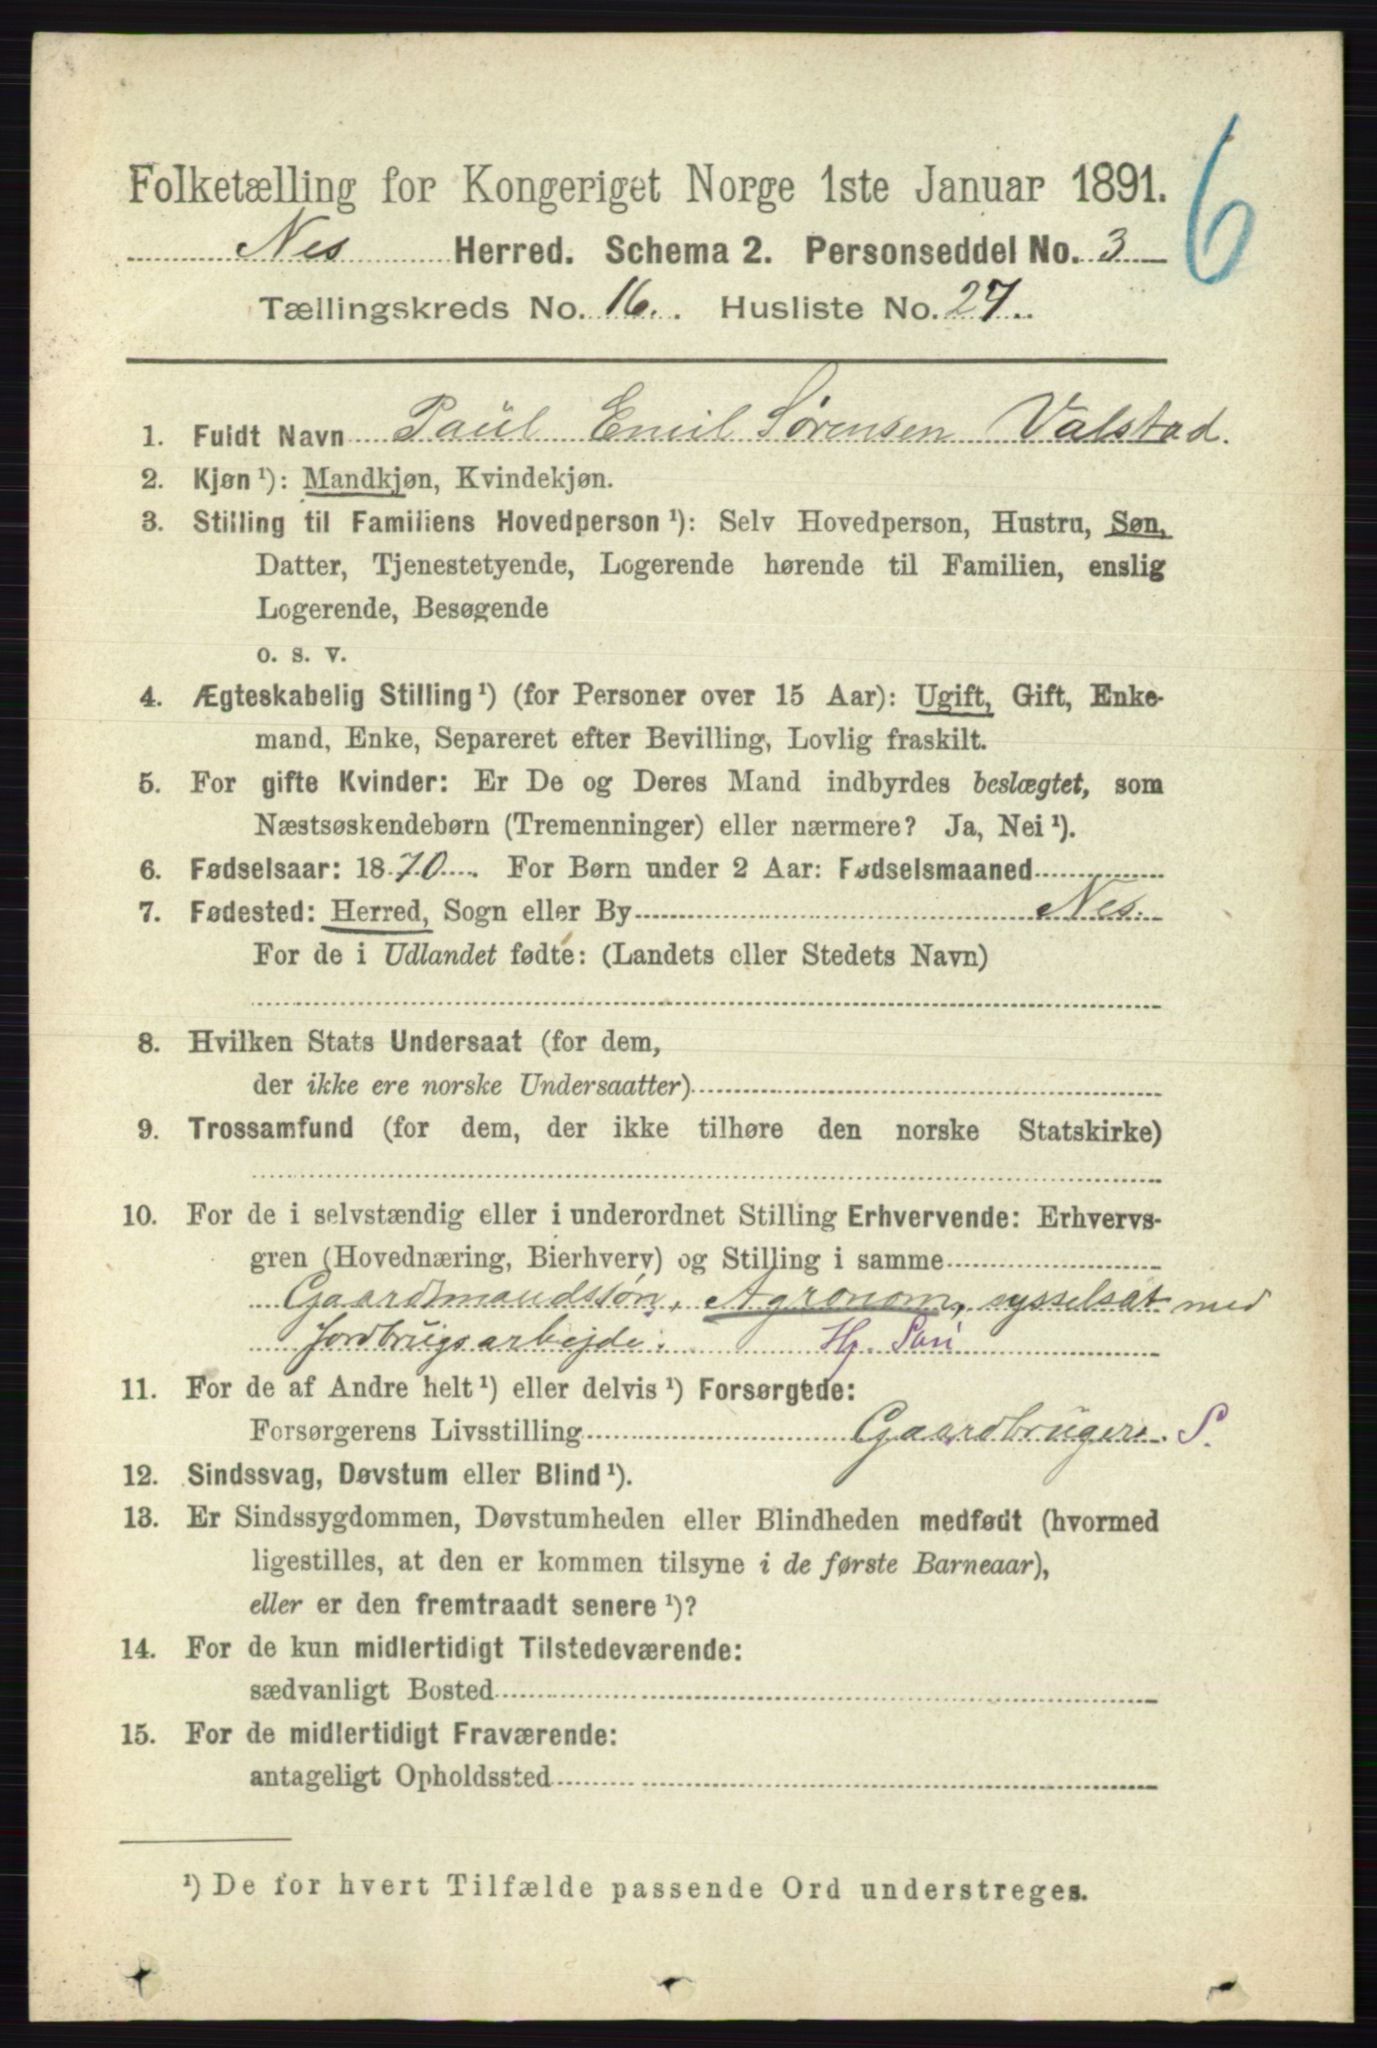 6
Folketælling for Kongeriget Norge 1ste Januar 1891.
Nes Herred. Schema 2. Personseddel No. 3
Tællingskreds No. 16. Husliste No. 27
1. Fuldt Navn Paul Emil Sørensen Valstad.
2. Kjøn ¹): Mandkjøn, Kvindekjøn.
3. Stilling til Familiens Hovedperson ¹): Selv Hovedperson, Hustru, Søn,
Datter, Tjenestetyende, Logerende hørende til Familien, enslig
Logerende, Besøgende
o. s. v.
4. Ægteskabelig Stilling ¹) (for Personer over 15 Aar): Ugift, Gift, Enke-
mand, Enke, Separeret efter Bevilling, Lovlig fraskilt.
5. For gifte Kvinder: Er De og Deres Mand indbyrdes beslægtet, som
Næstsøskendebørn (Tremenninger) eller nærmere? Ja, Nei ¹).
6. Fødselsaar: 1870. For Børn under 2 Aar: Fødselsmaaned
7. Fødested: Herred, Sogn eller By Nes.
For de i Udlandet fødte: (Landets eller Stedets Navn)
8. Hvilken Stats Undersaat (for dem,
der ikke ere norske Undersaatter)
9. Trossamfund (for dem, der ikke tilhøre den norske Statskirke)
10. For de i selvstændig eller i underordnet Stilling Erhvervende: Erhvervs-
gren (Hovednæring, Bierhverv) og Stilling i samme
Gaardmandssøn, Agronom, sysselsat med
Jordbrugsarbejde. Hj.
11. For de af Andre helt ¹) eller delvis ¹) Forsørgede:
Forsørgerens Livsstilling Gaardbruger. S.
12. Sindssvag, Døvstum eller Blind ¹).
13. Er Sindssygdommen, Døvstumheden eller Blindheden medfødt (hvormed
ligestilles, at den er kommen tilsyne i de første Barneaar),
eller er den fremtraadt senere ¹)?
14. For de kun midlertidigt Tilstedeværende:
sædvanligt Bosted
15. For de midlertidigt Fraværende:
antageligt Opholdssted
¹) De for hvert Tilfælde passende Ord understreges.